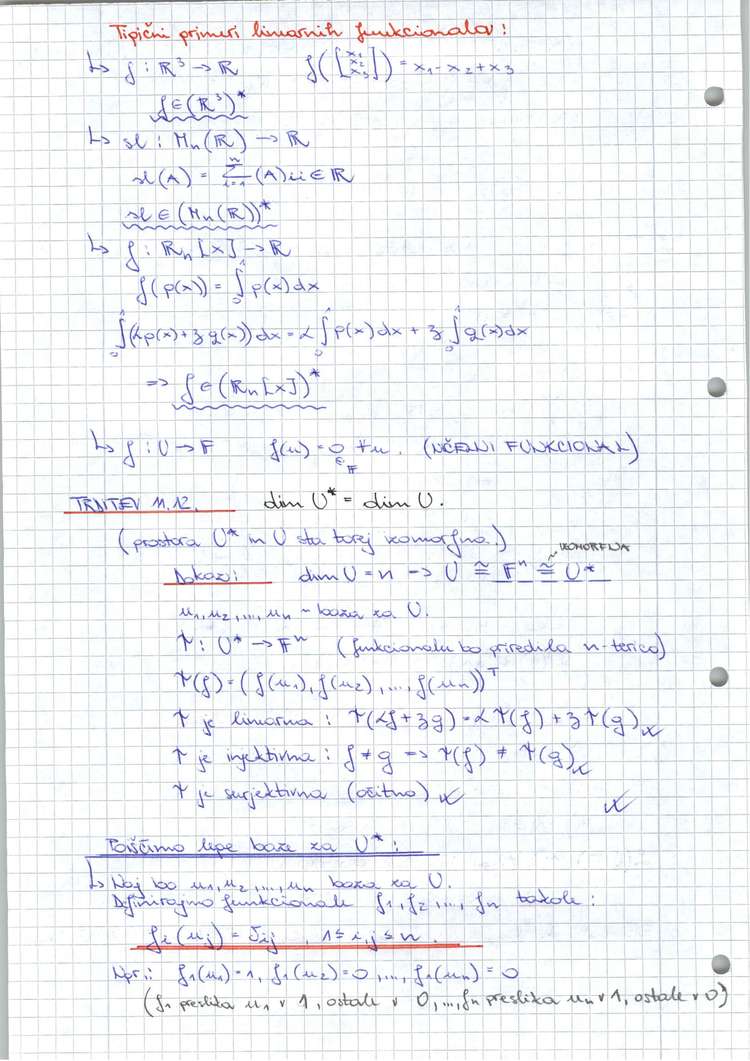 Tipični primeri linearnih funkcionalov:
↳ f: ℝ³ → ℝ   f([x₁ x₂ x₃]) = x₁ - x₂ + x₃
f ∈ (ℝ³)*
↳ sl: Mₙ(ℝ) → ℝ
sl(A) = ∑ᵢ₌₁ⁿ (A)ii ∈ ℝ
sl ∈ (Mₙ(ℝ))*
↳ f: ℝₙ[x] → ℝ
f(p(x)) = ∫₀¹ p(x)dx
∫₀¹ (αp(x) + βq(x))dx = α∫₀¹ p(x)dx + β∫₀¹ q(x)dx
=> f ∈ (ℝₙ[x])*
↳ f: U → F   f(u) = 0 ∀u. (NIČELNI FUNKCIONAL)
∈ F
TRDITEV 11.12.   dim U* = dim U.
(prostora U* in U sta torej izomorfna.)
IZOMORFIJA
Dokaz:   dim U = n -> U ≅ Fⁿ ≅ U*
u₁, u₂, ..., uₙ ~ baza za U.
τ: U* → Fⁿ   (funkcionalu bo priredila n-terico)
τ(f) = (f(u₁), f(u₂), ..., f(uₙ))ᵀ
τ je linearna: τ(αf + βg) = ατ(f) + βτ(g) ✓
τ je injektivna: f ≠ g => τ(f) ≠ τ(g) ✓
τ je surjektivna (očitno) ✓   ✓
Poiščimo lepe baze za U*:
↳ Naj bo u₁, u₂, ..., uₙ baza za U.
Definirajmo funkcionale f₁, f₂, ..., fₙ takole:
fᵢ(uⱼ) = δᵢⱼ, 1 ≤ i,j ≤ n.
Npr.: f₁(u₁) = 1, f₁(u₂) = 0, ..., f₁(uₙ) = 0
(f₁ preslika u₁ v 1, ostale v 0, ..., fₙ preslika uₙ v 1, ostale v 0)